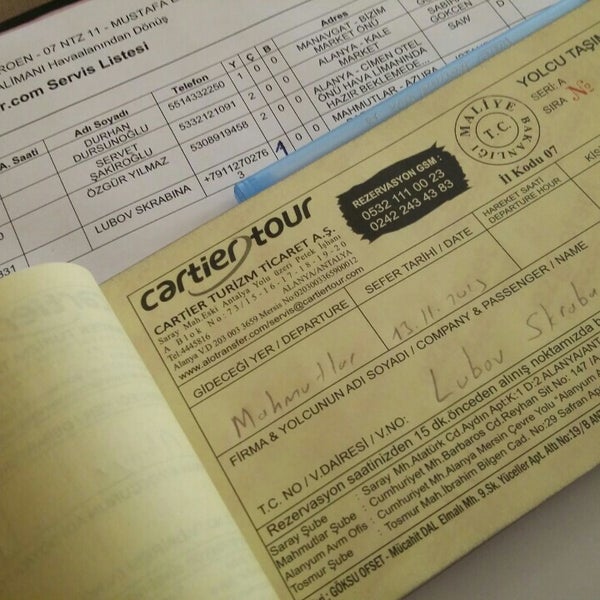 ROEN - 07 NTZ 11 - MUSTAFA
ALİMANI Havaalanından Dönüş
r.com Servis Listesi
A. Saati Adı Soyadı Telefon Y Ç B Adres
DURHAN DURSUNOĞLU 5514332250 1 0 0 MANAVGAT - BİZİM MARKET ÖNÜ
SERVET ŞAKİROĞLU 5332121091 2 0 0 ALANYA - KALE MARKET
GÖKCEN
ÖZGÜR YILMAZ 5308919458 2 0 0 ALANYA - ÇİMEN OTEL ÖNÜ HAVA LİMANINDA HAZIR BEKLEMEDE...
SAW
LUBOV SKRABINA +79112702763 1 0 0 MAHMUTLAR - AZURA
331
YOLCU TAŞIM
SERİ: A
SIRA No
MALİYE BAKANLIĞI
T.C.
İl Kodu 07
REZERVASYON GSM :
0532 111 00 23
0242 243 43 83
cartier tour
CARTİER TURİZM TİCARET A.Ş.
Saray Mah.Eski Antalya Yolu üzeri Petek İşhanı
A Blok No:73/15-16-17-18-19-20
Tel:4445816 ALANYA/ANTALYA
Alanya V.D 203 003 3659 Mersis No:0203003365900012
www.alotransfer.com/servis@cartiertour.com
GİDECEĞİ YER / DEPARTURE
SEFER TARİHİ / DATE
HAREKET SAATİ
DEPARTURE HOUR
KİŞİ
Mahmutlar
13.11.2013
FİRMA & YOLCUNUN ADI SOYADI / COMPANY & PASSENGER / NAME
Lubov Skraba
T.C. NO / V.DAİRESİ / V.NO:
Rezervasyon saatinizden 15 dk.önceden alınış noktamızda b
Saray Şube : Saray Mh.Atatürk Cd Aydın Apt.K:1 D:2 ALANYA/ANT
Mahmutlar Şube : Cumhuriyet Mh.Barbaros Cd.Reyhan Sit No: 147 /A
Alanyum Avm Ofis : Cumhuriyet Mh.Alanya Mersin Çevre Yolu "Alanyum A
Tosmur Şube : Tosmur Mah.İbrahim Bilgen Cad. No:29 Safran Ap
: GÖKSU OFSET - Mücahit DAL Elmalı Mh. 9.Sk. Yüceller Apt. Altı No:19/B ANT